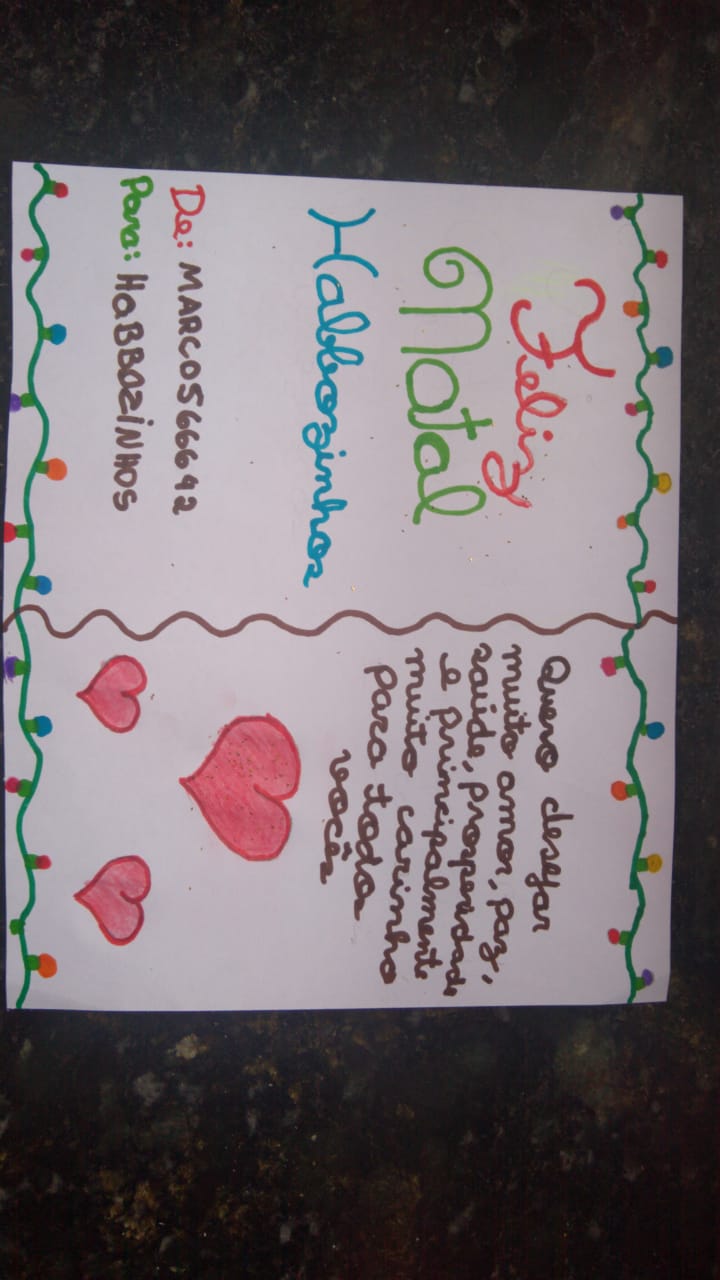 Feliz
Natal
Habbozinhos
De: MARCOS66642
Para: HaBBOZiNHOS
Quero desejar
muito amor, paz,
saúde, prosperidade
e principalmente
muito carinho
para todos
vocês